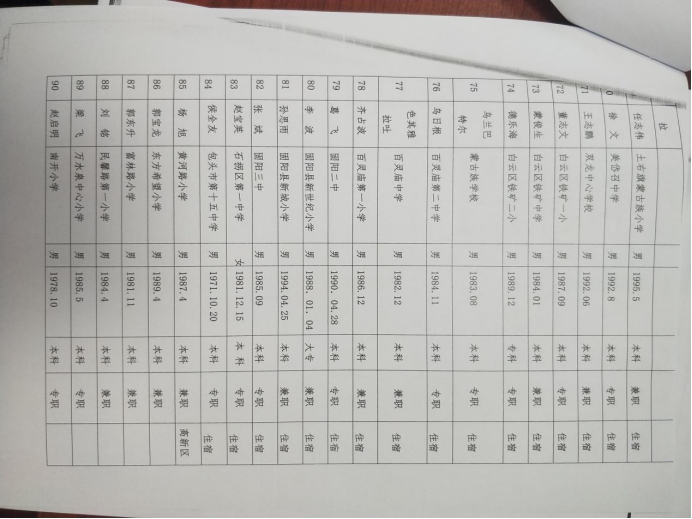 拉
任志伟 土右旗蒙古族小学 男 1995.5 本科 兼职 住宿
0 徐 文 美岱召中学 男 1992.8 本科 专职 住宿
71 王志鹏 双龙中心学校 男 1992.06 本科 专职 住宿
72 董志文 白云区铁矿一小 男 1987.09 本科 专职 住宿
73 蒙俊生 白云区铁矿中学 男 1984.01 本科 兼职 住宿
74 德乐海 白云区铁矿二小 男 1989.12 专科 专职 住宿
75 乌兰巴特尔 蒙古族学校 男 1983.08 本科 专职 住宿
76 乌日根 百灵庙第二中学 男 1984.11 本科 专职 住宿
77 色其雅拉吐 百灵庙中学 男 1982.12 本科 兼职 住宿
78 齐占波 百灵庙第一小学 男 1986.12 本科 兼职 住宿
79 葛 飞 固阳二中 男 1990.04.28 本科 专职 住宿
80 李 波 固阳县新世纪小学 男 1988.01.04 大专 兼职 住宿
81 孙思雨 固阳县新城小学 男 1994.04.25 本科 兼职 住宿
82 张 斌 固阳三中 男 1985.09 本科 专职 住宿
83 赵宝英 石拐区第一中学 女 1981.12.15 本科 专职 住宿
84 侯全友 包头市第十五中学 男 1971.10.20 本科 专职 住宿
85 杨 旭 黄河路小学 男 1987.4 本科 兼职 高新区
86 郭宝龙 东方希望小学 男 1989.4 本科 兼职
87 郭东升 富林路小学 男 1981.11 本科 兼职
88 刘 铭 民馨路第一小学 男 1984.4 本科 兼职
89 梁 飞 万水泉中心小学 男 1985.5 本科 专职
90 赵启明 南开小学 男 1978.10 本科 专职